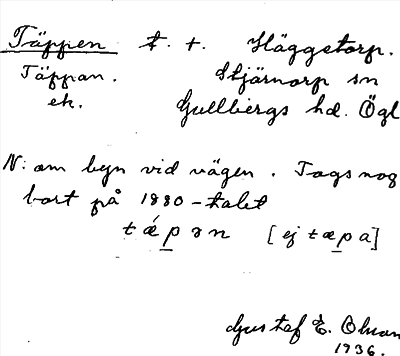 Täppen t. t. Häggetorp.
Täppan. Stjärnorp sn
ek. Gullbergs hd. Ögl
N: om byn vid vägen. Togs nog
bort på 1880-talet
tǽpən [ej tæpa]
Gustaf E. Ohman
1936.